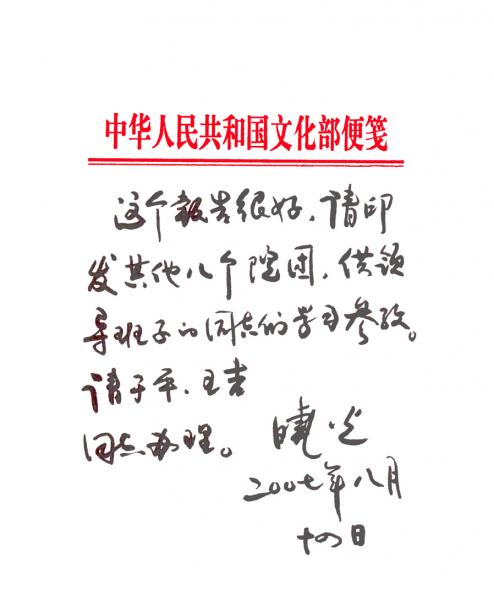 中华人民共和国文化部便笺
这个报告很好,请印
发其他八个院团,供领
导班子的同志们学习参考。
请子平、王吉
同志办理。
晓光
2007年八月
十四日